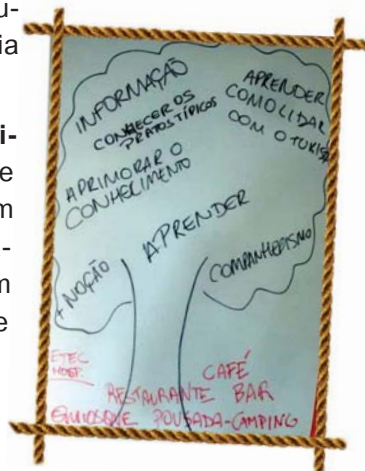 u-
ia
i-
e
m
-
m
e
INFORMAÇÃO
CONHECER OS
PRATOS TÍPICOS
APRIMORAR O
CONHECIMENTO
APRENDER
COMO LIDAR
COM O TURISTA
APRENDER
+ NOÇÃO
COMPANHEIRISMO
ETEC
HOSP.
CAFÉ
RESTAURANTE BAR
QUIOSQUE POUSADA-CAMPING